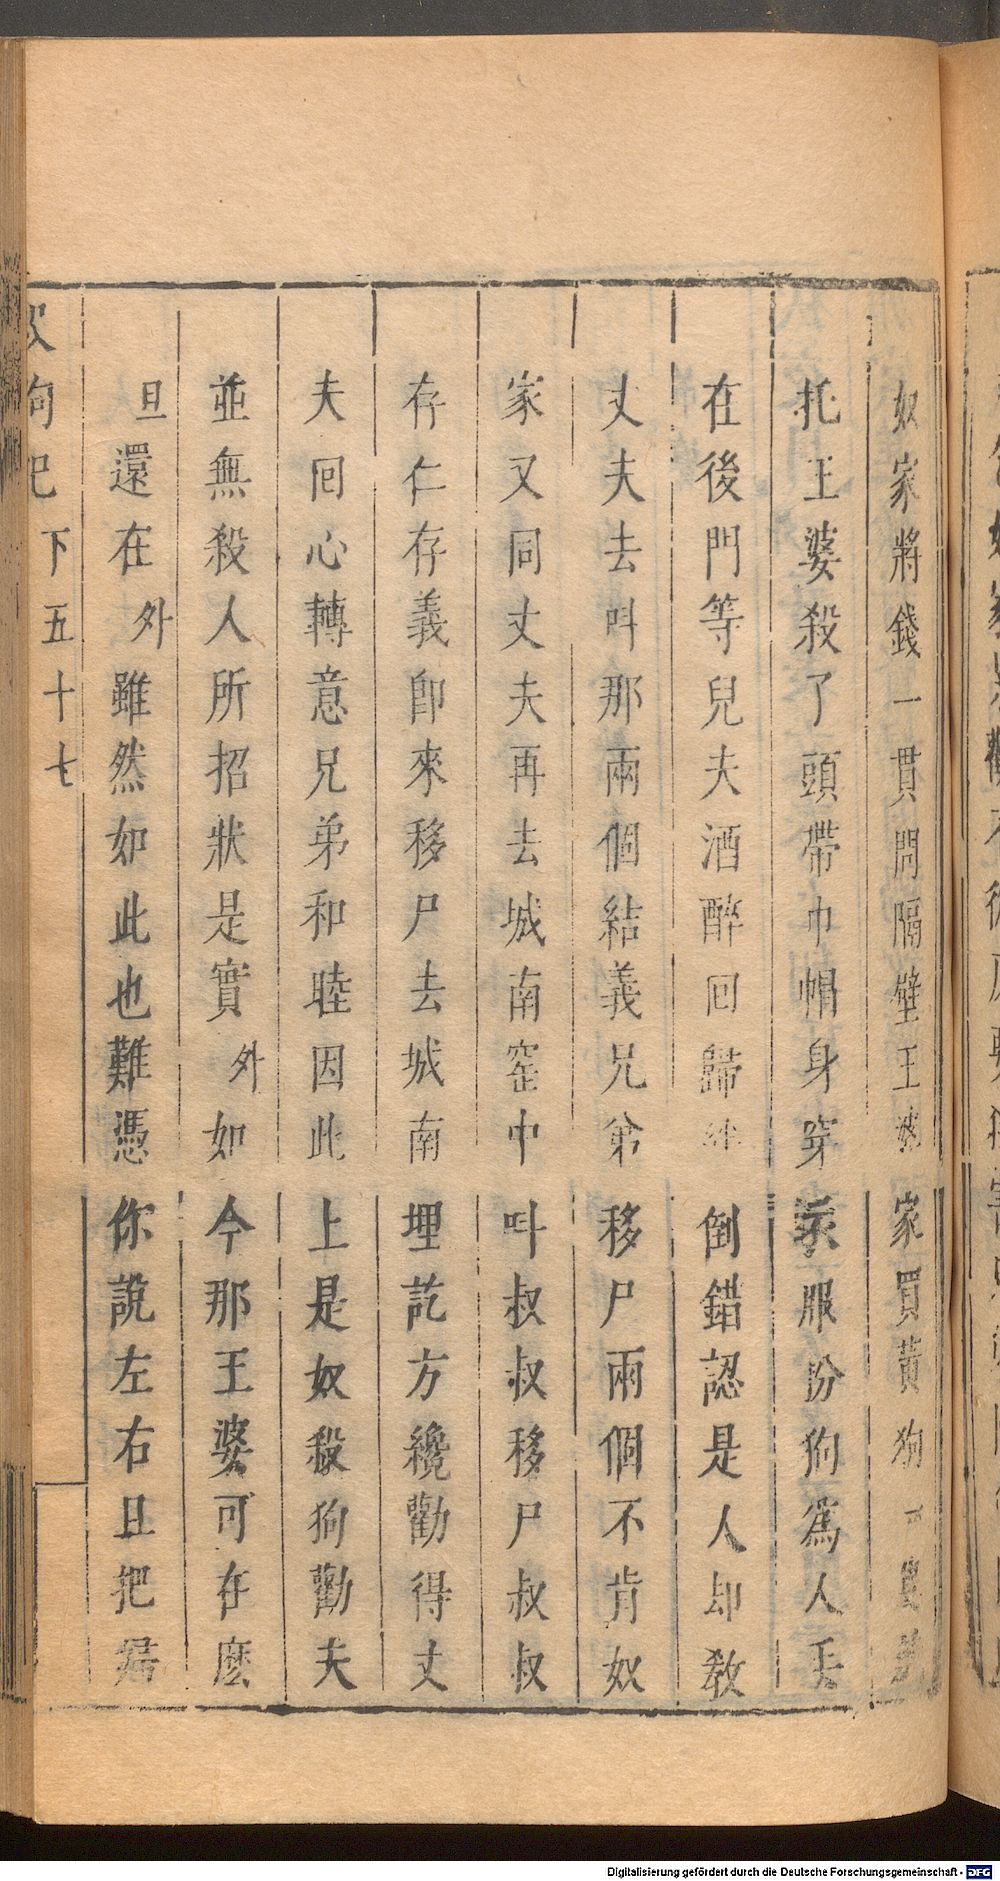 奴家將錢一貫問隔壁王婆家買黃狗一
托王婆殺了頭帶巾帽身穿衣服扮狗爲人丟
在後門等兒夫酒醉回歸絆倒錯認是人却教
丈夫去叫那兩個結義兄弟移尸兩個不肯奴
家又同丈夫再去城南窑中叫叔叔移尸叔叔
存仁存義即來移尸去城南埋訖方纔勸得丈
夫回心轉意兄弟和睦因此上是奴殺狗勸夫
並無殺人所招狀是實外如今那王婆可在麽
旦還在外雖然如此也難憑你說左右且把
狗記下五十七
Digitalisierung gefördert durch die Deutsche Forschungsgemeinschaft - DFG